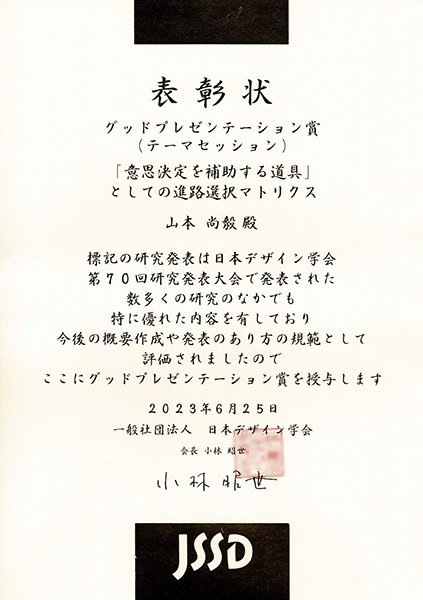 表彰状
グッドプレゼンテーション賞
(テーマセッション)
「意思決定を補助する道具」
としての進路選択マトリクス
山本 尚毅 殿
標記の研究発表は日本デザイン学会
第70回研究発表大会で発表された
数多くの研究のなかでも
特に優れた内容を有しており
今後の概要作成や発表のあり方の規範として
評価されましたので
ここにグッドプレゼンテーション賞を授与します
2023年6月25日
一般社団法人 日本デザイン学会
会長 小林 昭世
小林 昭世
JSSD